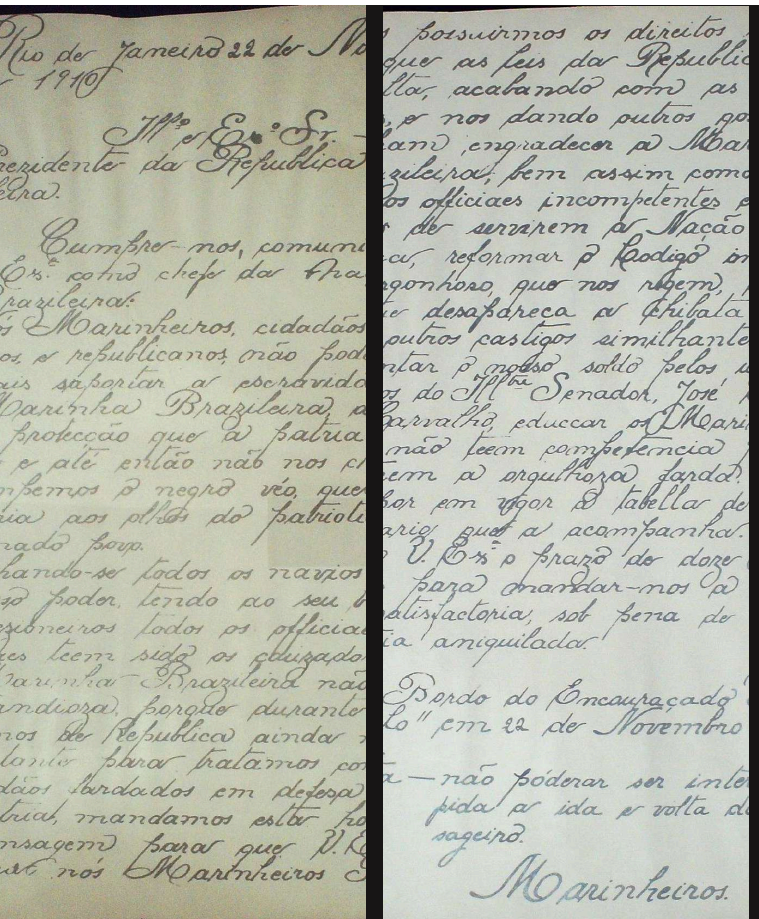 Rio de Janeiro 22 de No
1910
Illº e Exº Sr. —
rezidente da Republica
leira.
Cumpre-nos, comuni
Exª como chefe da
razileira:
s Marinheiros, cidadãos
os, e republicanos, não pod
ais suportar a escravida
Marinha Brazileira, a
protecção que a patria
e até então não nos c
mpemos o negro véo, que
ria aos olhos do patrioti
nado povo.
hando-se todos os navios
so poder, tendo ao seu b
esioneiros todos os officia
es teem sido os cauzado
arinha Brazileira não
andioza, porque durante
nos de Republica ainda n
tante para tratarnos co
dãos fardados em defeza
tria, mandamos esta ho
nsagem para que V. E
nós Marinheiros
s possuirmos os direitos
que as leis da Republic
lta, acabando com as
, e nos dando outros go
ham engradecer a Mar
zileira; bem assim como
os officiaes incompetentes e
de servirem a Nação
a, reformar o Codigo im
rgonhoso, que nos regem,
e desapareca a Chibata
outros castigos similhante
ntar o nosso soldo pelos u
os do Illtre Senador, José
Carvalho, educcar os Mari
não teem competencia
em a orgulhoza farda.
por em vigor a tabella de
ario que a acompanha.
V. Exª o prazo de doze
para mandar-nos a
satisfactoria, sob pena de
ia aniquilada.
Bordo do Encouraçado
lo" em 22 de Novembro
a — não póderar ser inter
pida a ida e volta d
sageiro.
Marinheiros.